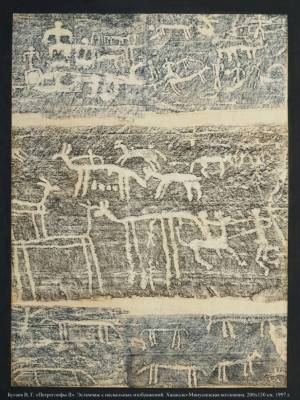 Бутаев В. Г. «Петроглифы II». Эстампаж с наскальных изображений. Хакасско-Минусинская котловина. 200х150 см. 1997 г.